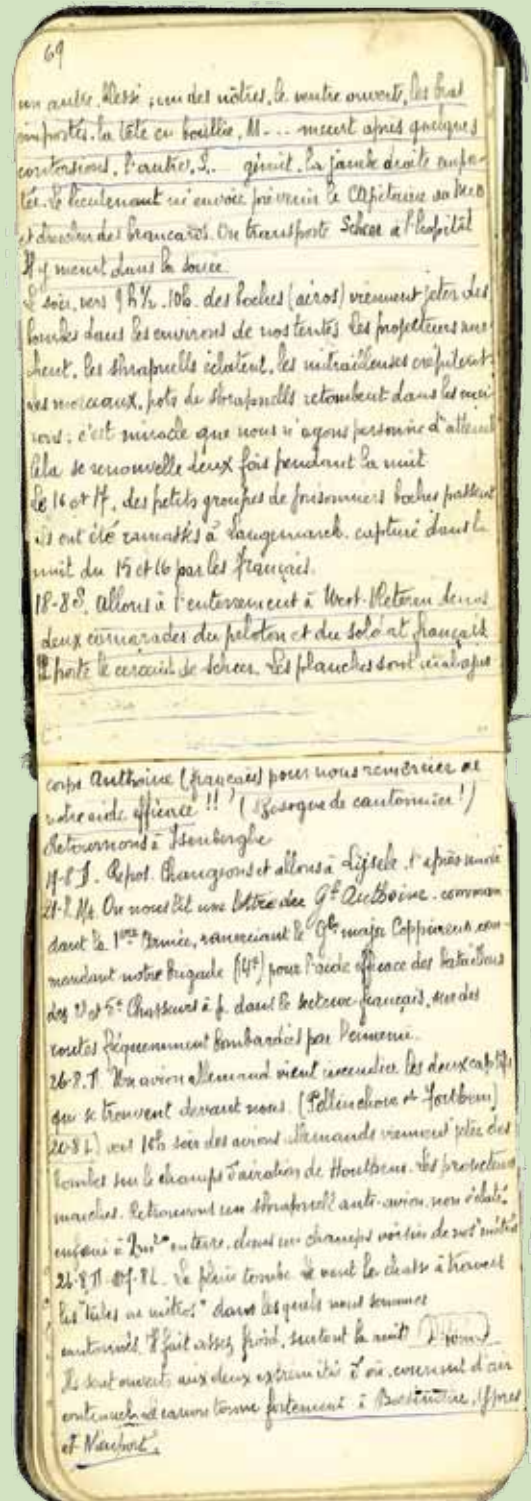 69
un autre blessé ; un des nôtres, le ventre ouvert, les bras
emportés, la tête en bouillie, M... meurt après quelques
contorsions, l'autre, S... gémit, la jambe droite empor-
tée. Le lieutenant m'envoie prévenir le Capitaine
et des brancards. On transporte Scheer à l'hopital
Il y meurt dans la soirée
Le soir, vers 9 h ½ - 10h. des boches (aéros) viennent jeter des
bombes dans les environs de nos tentes. Les projecteurs mar-
chent, les shrapnells éclatent, les mitrailleuses crépitent
des morceaux, pots de shrapnells retombent dans les envi-
rons ; c'est miracle que nous n'ayons personne d'atteint
Cela se renouvelle deux fois pendant la nuit
Le 16 et 17, des petits groupes de prisonniers boches passent
ils ont été ramassés à Langemarck. capturé dans la
nuit du 15 et 16 par les français.
18-8 S. Allons à l'enterrement à West-Vleteren de nos
deux camarades du peloton et du soldat français
porte le cercueil de Scheer. Les planches sont
corps Anthoine (français) pour nous remercier de
notre aide efficace !! (Besogne de cantonnier !)
Retournons à Isenberghe
19-8 D. Repos. Changeons et allons à Lijsele. l'après midi
21-8 Ma. On nous lit une lettre du Gal Anthoine. comman-
dant la 1ère Armée, remerciant le Gal major Coppieters, com-
mandant notre brigade (14e) pour l'aide efficace des bataillons
des 2e et 5e Chasseurs à p. dans le secteur français, sur des
routes fréquemment bombardées par l'ennemi.
26-8. D. Un avion allemand vient incendier les deux captifs
qui se trouvent devant nous. (Pollinchove et Forthem)
20-8 L) vers 10h soir des avions allemands viennent jeter des
bombes sur le champs d'aviation de Houthem. Les projecteurs
marchent. Retrouvons un shrapnell anti-avion, non éclaté
enfoui à 2m en terre, dans un champs voisin de nos "métros"
26-8 D. 27-8 L. La pluie tombe le vent la chasse à travers
les "tubes au métros" dans lesquels nous sommes
cantonnés. Il fait assez froid, surtout la nuit.
Ils sont ouverts aux deux extrémités d'où, courant d'air
continuel. Le canon tonne fortement à Ypres
et Nieuport.